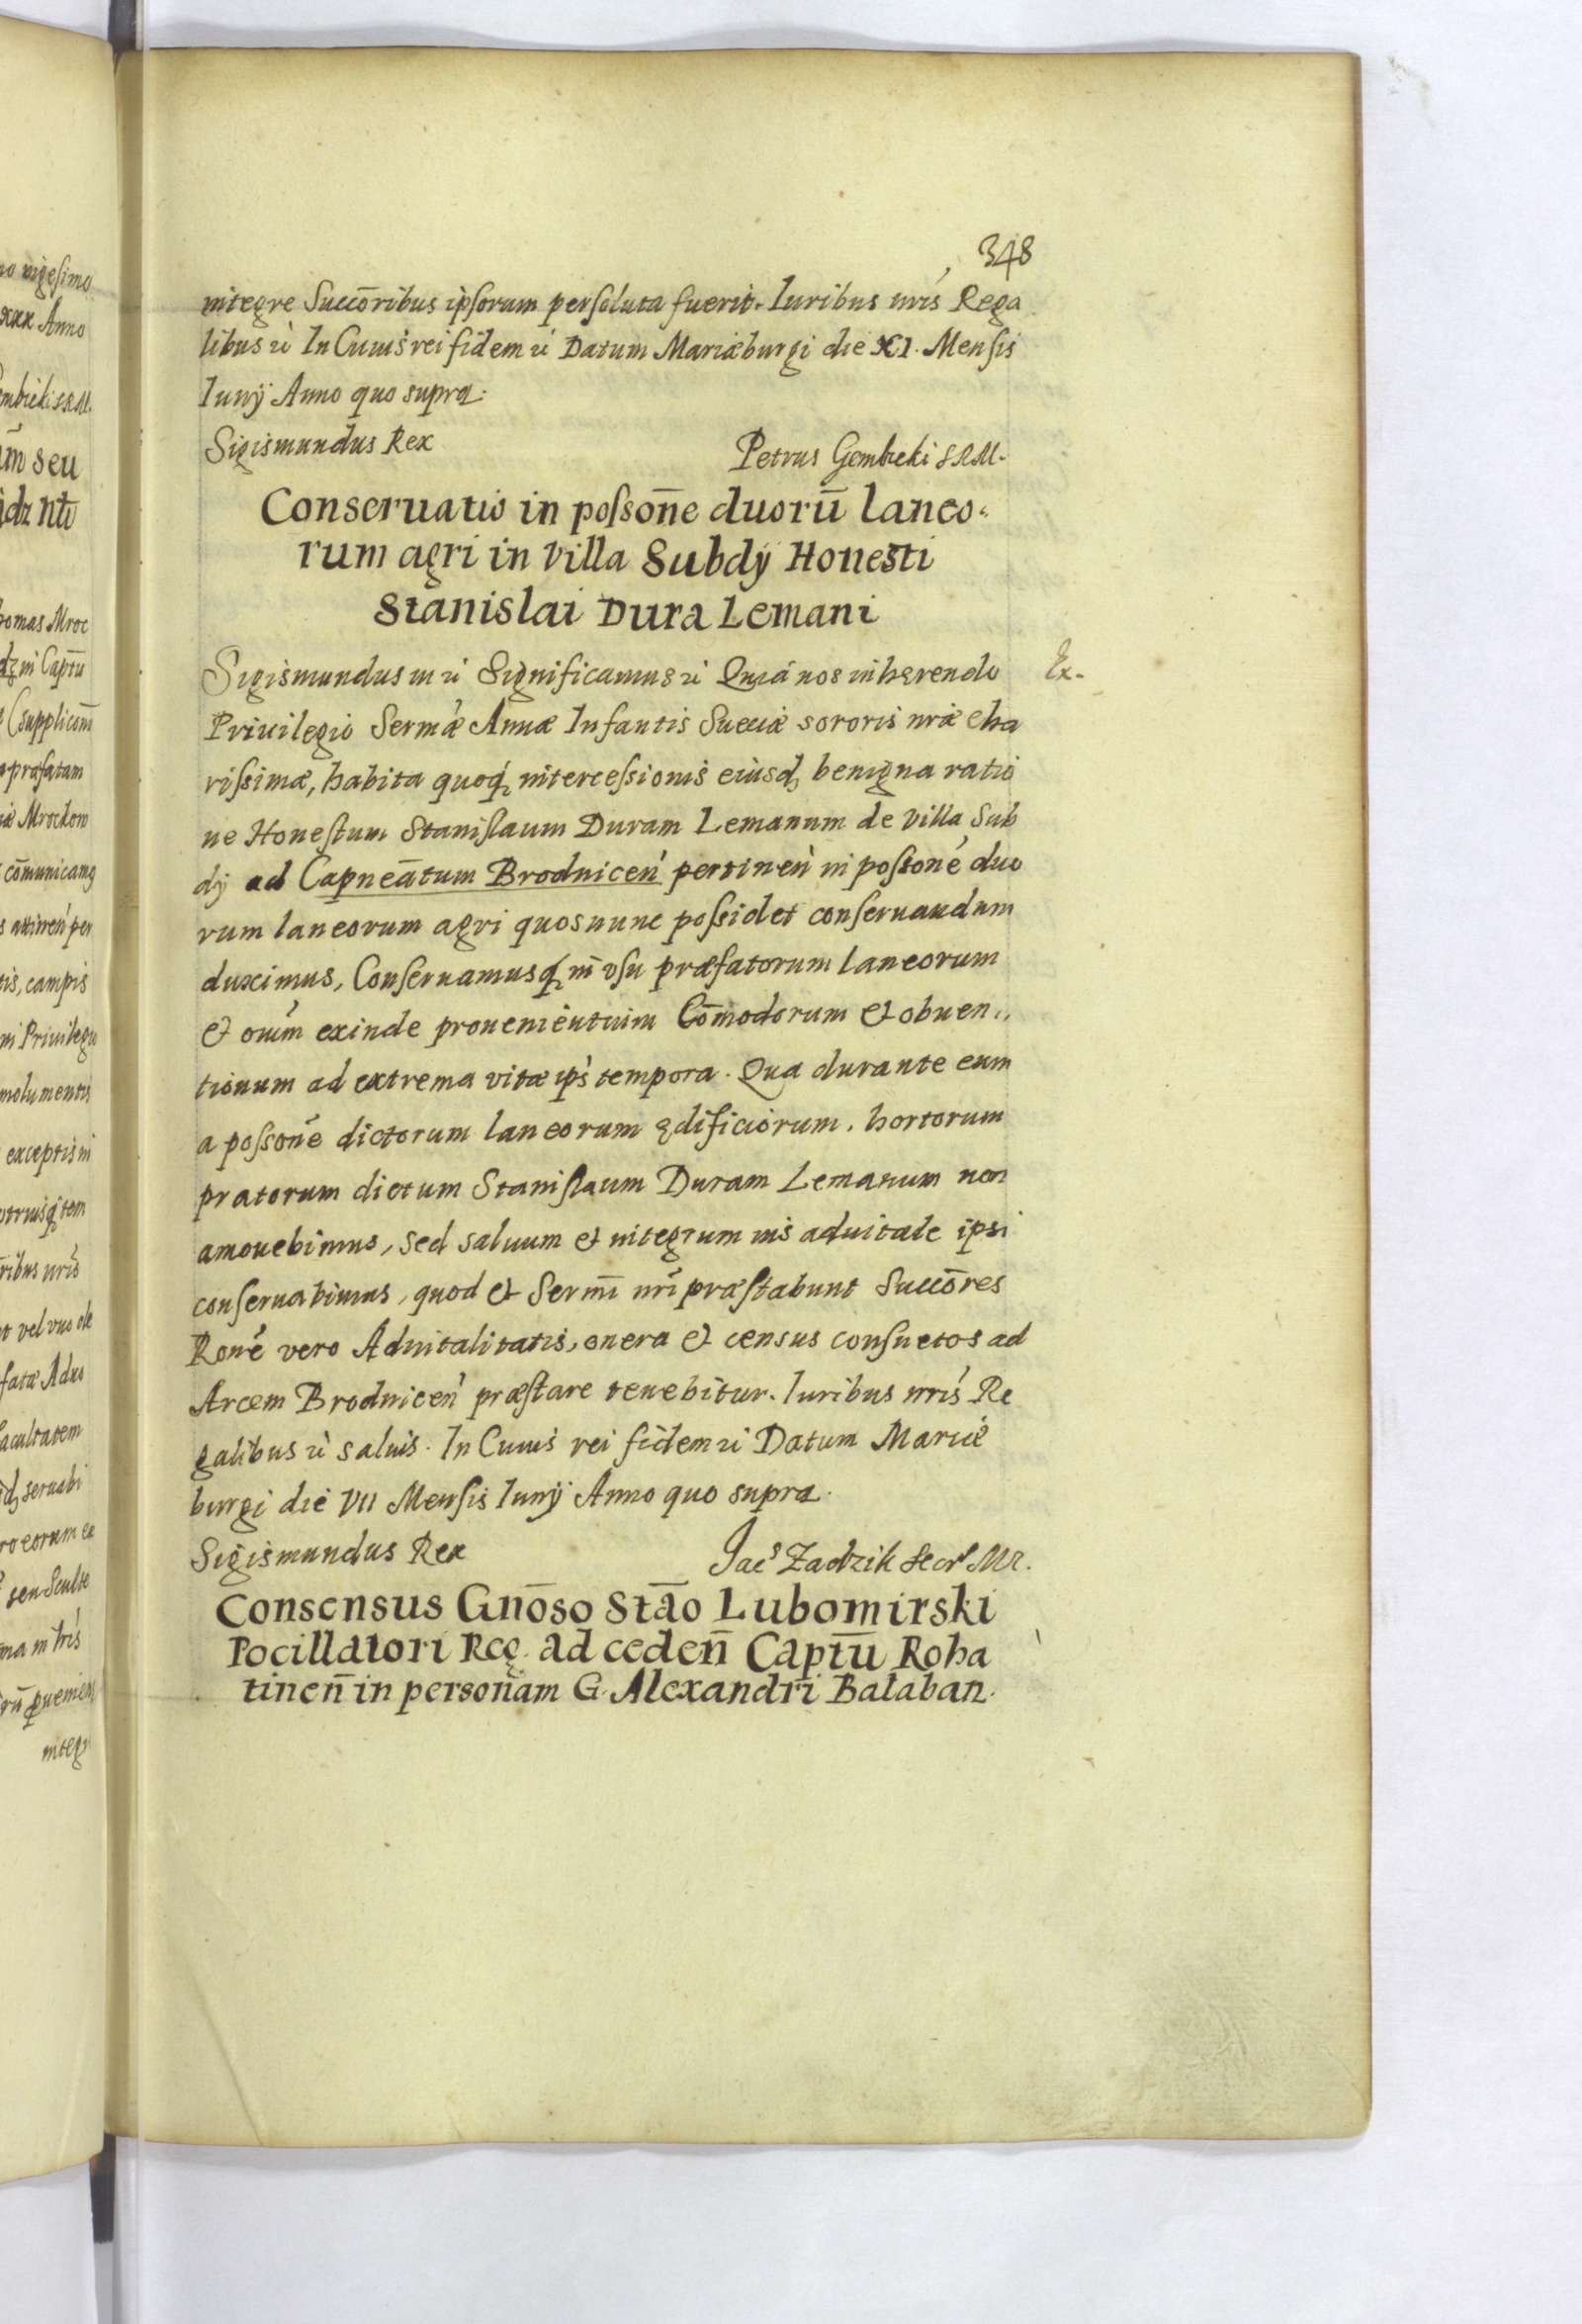 348
integre Succōribus ipsorum persoluta fuerit. Iuribus nrîs Rega
libus &c In Cuius rei fidem &c Datum Mariæburgi die XI. Mensis
Iunÿ Anno quo supra.
Sigismundus Rex
Petrus Gembicki SRM.
Conseruatio in possōne duorū laneo-
rum agri in villa Subdÿ Honesti
Stanislai Dura Lemani
Sigismundus III &c Significamus &c Quia nos inhęrendo
Ex.
Priuilegio Sermæ Annæ Infantis Sueciæ sororis nræ cha
rissimæ, habita quoq, intercessionis eiusd, benigna ratio
ne Honestum Stanislaum Duram Lemanum de villa Sub
dÿ ad Capneātum Brodnicen pertinen in possone duo
rum laneorum agri quos nunc possidet conseruandum
duximus, Conseruamusq, in vsu præfatorum laneorum
et oium exinde prouenientium Cōmodorum et obuen,,
tionum ad extrema vitæ ips tempora. Qua durante eum
a possone dictorum laneorum ędificiorum, hortorum
pratorum dictum Stanislaum Duram Lemanum non
amouebimus, sed saluum et integrum ius aduitale ipsi
conseruabimus, quod et Sermi nri præstabunt Succōres
Rone vero Aduitalitatis, onera et census consuetos ad
Arcem Brodnicen præstare tenebitur. Iuribus nris Re
galibus &c saluis. In Cuius rei fidem &c Datum Mariæ
burgi die VII Mensis Iunÿ Anno quo supra.
Sigismundus Rex
Jac Zadzik Secr Mr.
Consensus Gnōso Stāo Lubomirski
Pocillatori Reg. ad ceden̄ Captū Roha
tinen̄ in personam G. Alexandri Balaban.